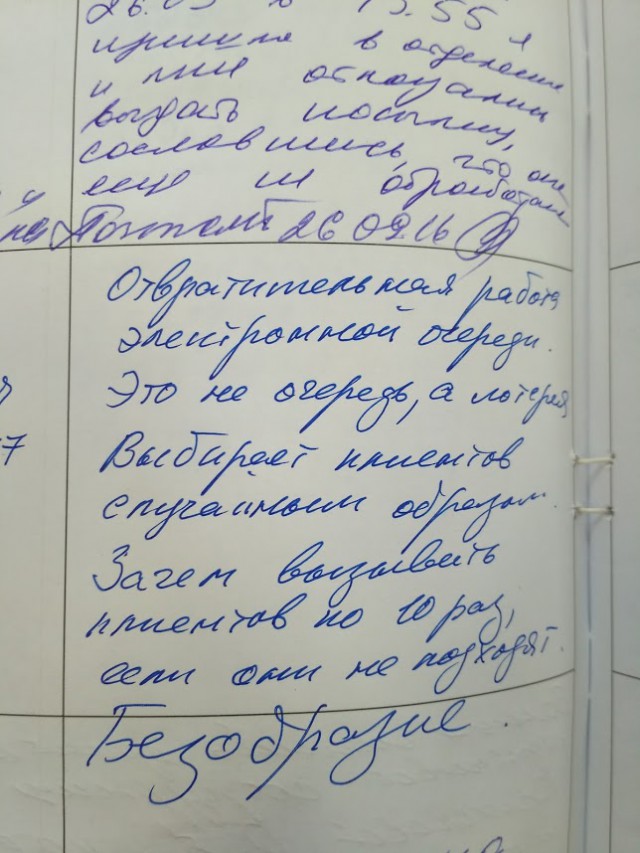 26.09 в 15.55 я
пришла в отделение
и мне отказали
выдать посылку,
сославшись, что она
еще не обработана
26 09.16
Отвратительная работа
электронной очереди.
Это не очередь, а лотерея
Выбирает клиентов
случайным образом.
Зачем вызывать
клиентов по 10 раз,
если они не подходят.
Безобразие.